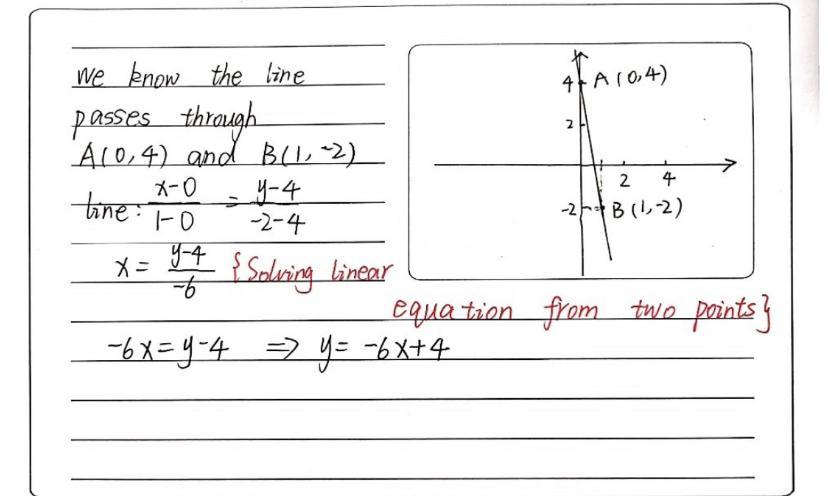 We know the line
passes through
A(0,4) and B(1,-2)
line: \frac{x-0}{1-0} = \frac{y-4}{-2-4}
x = \frac{y-4}{-6} {Solving linear
equation from two points}
-6x=y-4 ⇒ y= -6x+4
4 A(0,4)
2
2 4
-2 B(1,-2)